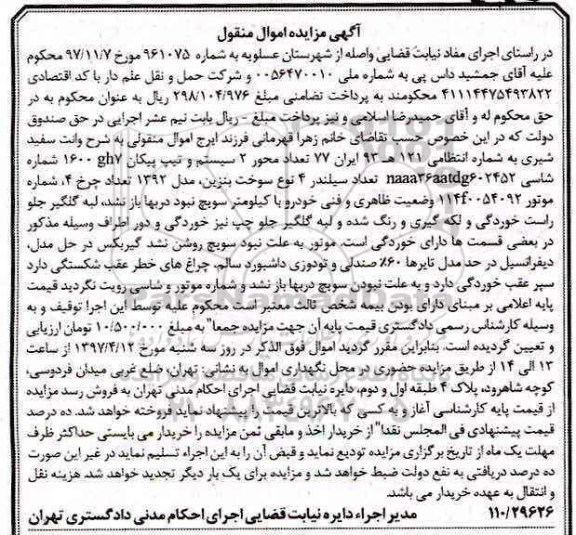 آگهی مزایده اموال منقول
در راستای اجرای مفاد نیابت قضایی واصله از شهرستان عسلویه به شماره ۹۶۱۰۷۵ مورخ ۹۷/۱۱/۷ محکوم
علیه آقای جمشید داس پی به شماره ملی ۰۰۵۶۴۷۰۰۱۰ و شرکت حمل و نقل علم دار با کد اقتصادی
۴۱۱۱۴۴۷۵۴۹۳۸۲۲ محکومند به پرداخت تضامنی مبلغ ۲۹۸/۱۰۴/۹۷۶ ریال به عنوان محکوم به در
حق محکوم له و آقای حمیدرضا اسلامی و نیز پرداخت مبلغ - ریال بابت نیم عشر اجرایی در حق صندوق
دولت که در این خصوص حسب تقاضای خانم زهرا قهرمانی فرزند ایرج اموال منقولی به شرح وانت سفید
شیری به شماره انتظامی ۱۲۱ هـ ۹۳ ایران ۷۷ تعداد محور ۲ سیستم و تیپ پیکان ۱۶۰۰ gh۷ شماره
شاسی naaa۳۶aatdg۶۰۲۴۵۲ تعداد سیلندر ۴ نوع سوخت بنزین، مدل ۱۳۹۲ تعداد چرخ ۴، شماره
موتور ۱۱۴f۰۰۵۴۰۹۲ وضعیت ظاهری و فنی خودرو با کیلومتر سویچ نبود دربها باز نشد، لبه گلگیر جلو
راست خوردگی و لکه گیری و رنگ شده و لبه گلگیر جلو چپ نیز خوردگی و دور اطراف وسیله مذکور
در بعضی قسمت ها دارای خوردگی است. موتور به علت نبود سویچ روشن نشد گیربکس در حل مدل،
دیفرانسیل در حد مدل تایرها ۶۰٪ صندلی و تودوزی داشبورد سالم. چراغ های خطر عقب شکستگی دارد
سپر عقب خوردگی دارد و به علت نبودن سویچ دربها باز نشد و شماره موتور و شاسی رویت نگردید قیمت
پایه اعلامی بر مبنای دارای بودن بیمه شخص ثالث معتبر است محکوم علیه توسط این اجرا توقیف و به
وسیله کارشناس رسمی دادگستری قیمت پایه آن جهت مزایده جمعا" به مبلغ ۱۰/۵۰۰/۰۰۰ تومان ارزیابی
و تعیین گردیده است. بنابراین مقرر گردید اموال فوق الذکر در روز سه شنبه مورخ ۱۳۹۷/۴/۱۲ از ساعت
۱۳ الی ۱۴ از طریق مزایده حضوری در محل نگهداری اموال به نشانی: تهران، ضلع غربی میدان فردوسی،
کوچه شاهرود، پلاک ۴ طبقه اول و دوم، دایره نیابت قضایی اجرای احکام مدنی تهران به فروش رسد مزایده
از قیمت پایه کارشناسی آغاز و به کسی که بالاترین قیمت را پیشنهاد نماید فروخته خواهد شد. ده درصد
قیمت پیشنهادی فی المجلس نقدا" از خریدار اخذ و مابقی ثمن مزایده را خریدار می بایستی حداکثر ظرف
مهلت یک ماه از تاریخ برگزاری مزایده تودیع نماید و قبض آن را به این اجراء تسلیم نماید در غیر این صورت
ده درصد دریافتی به نفع دولت ضبط خواهد شد و مزایده برای یک بار دیگر تجدید خواهد شد. هزینه نقل
و انتقال به عهده خریدار می باشد.
۱۱۰/۲۹۶۲۶ مدیر اجراء دایره نیابت قضایی اجرای احکام مدنی دادگستری تهران